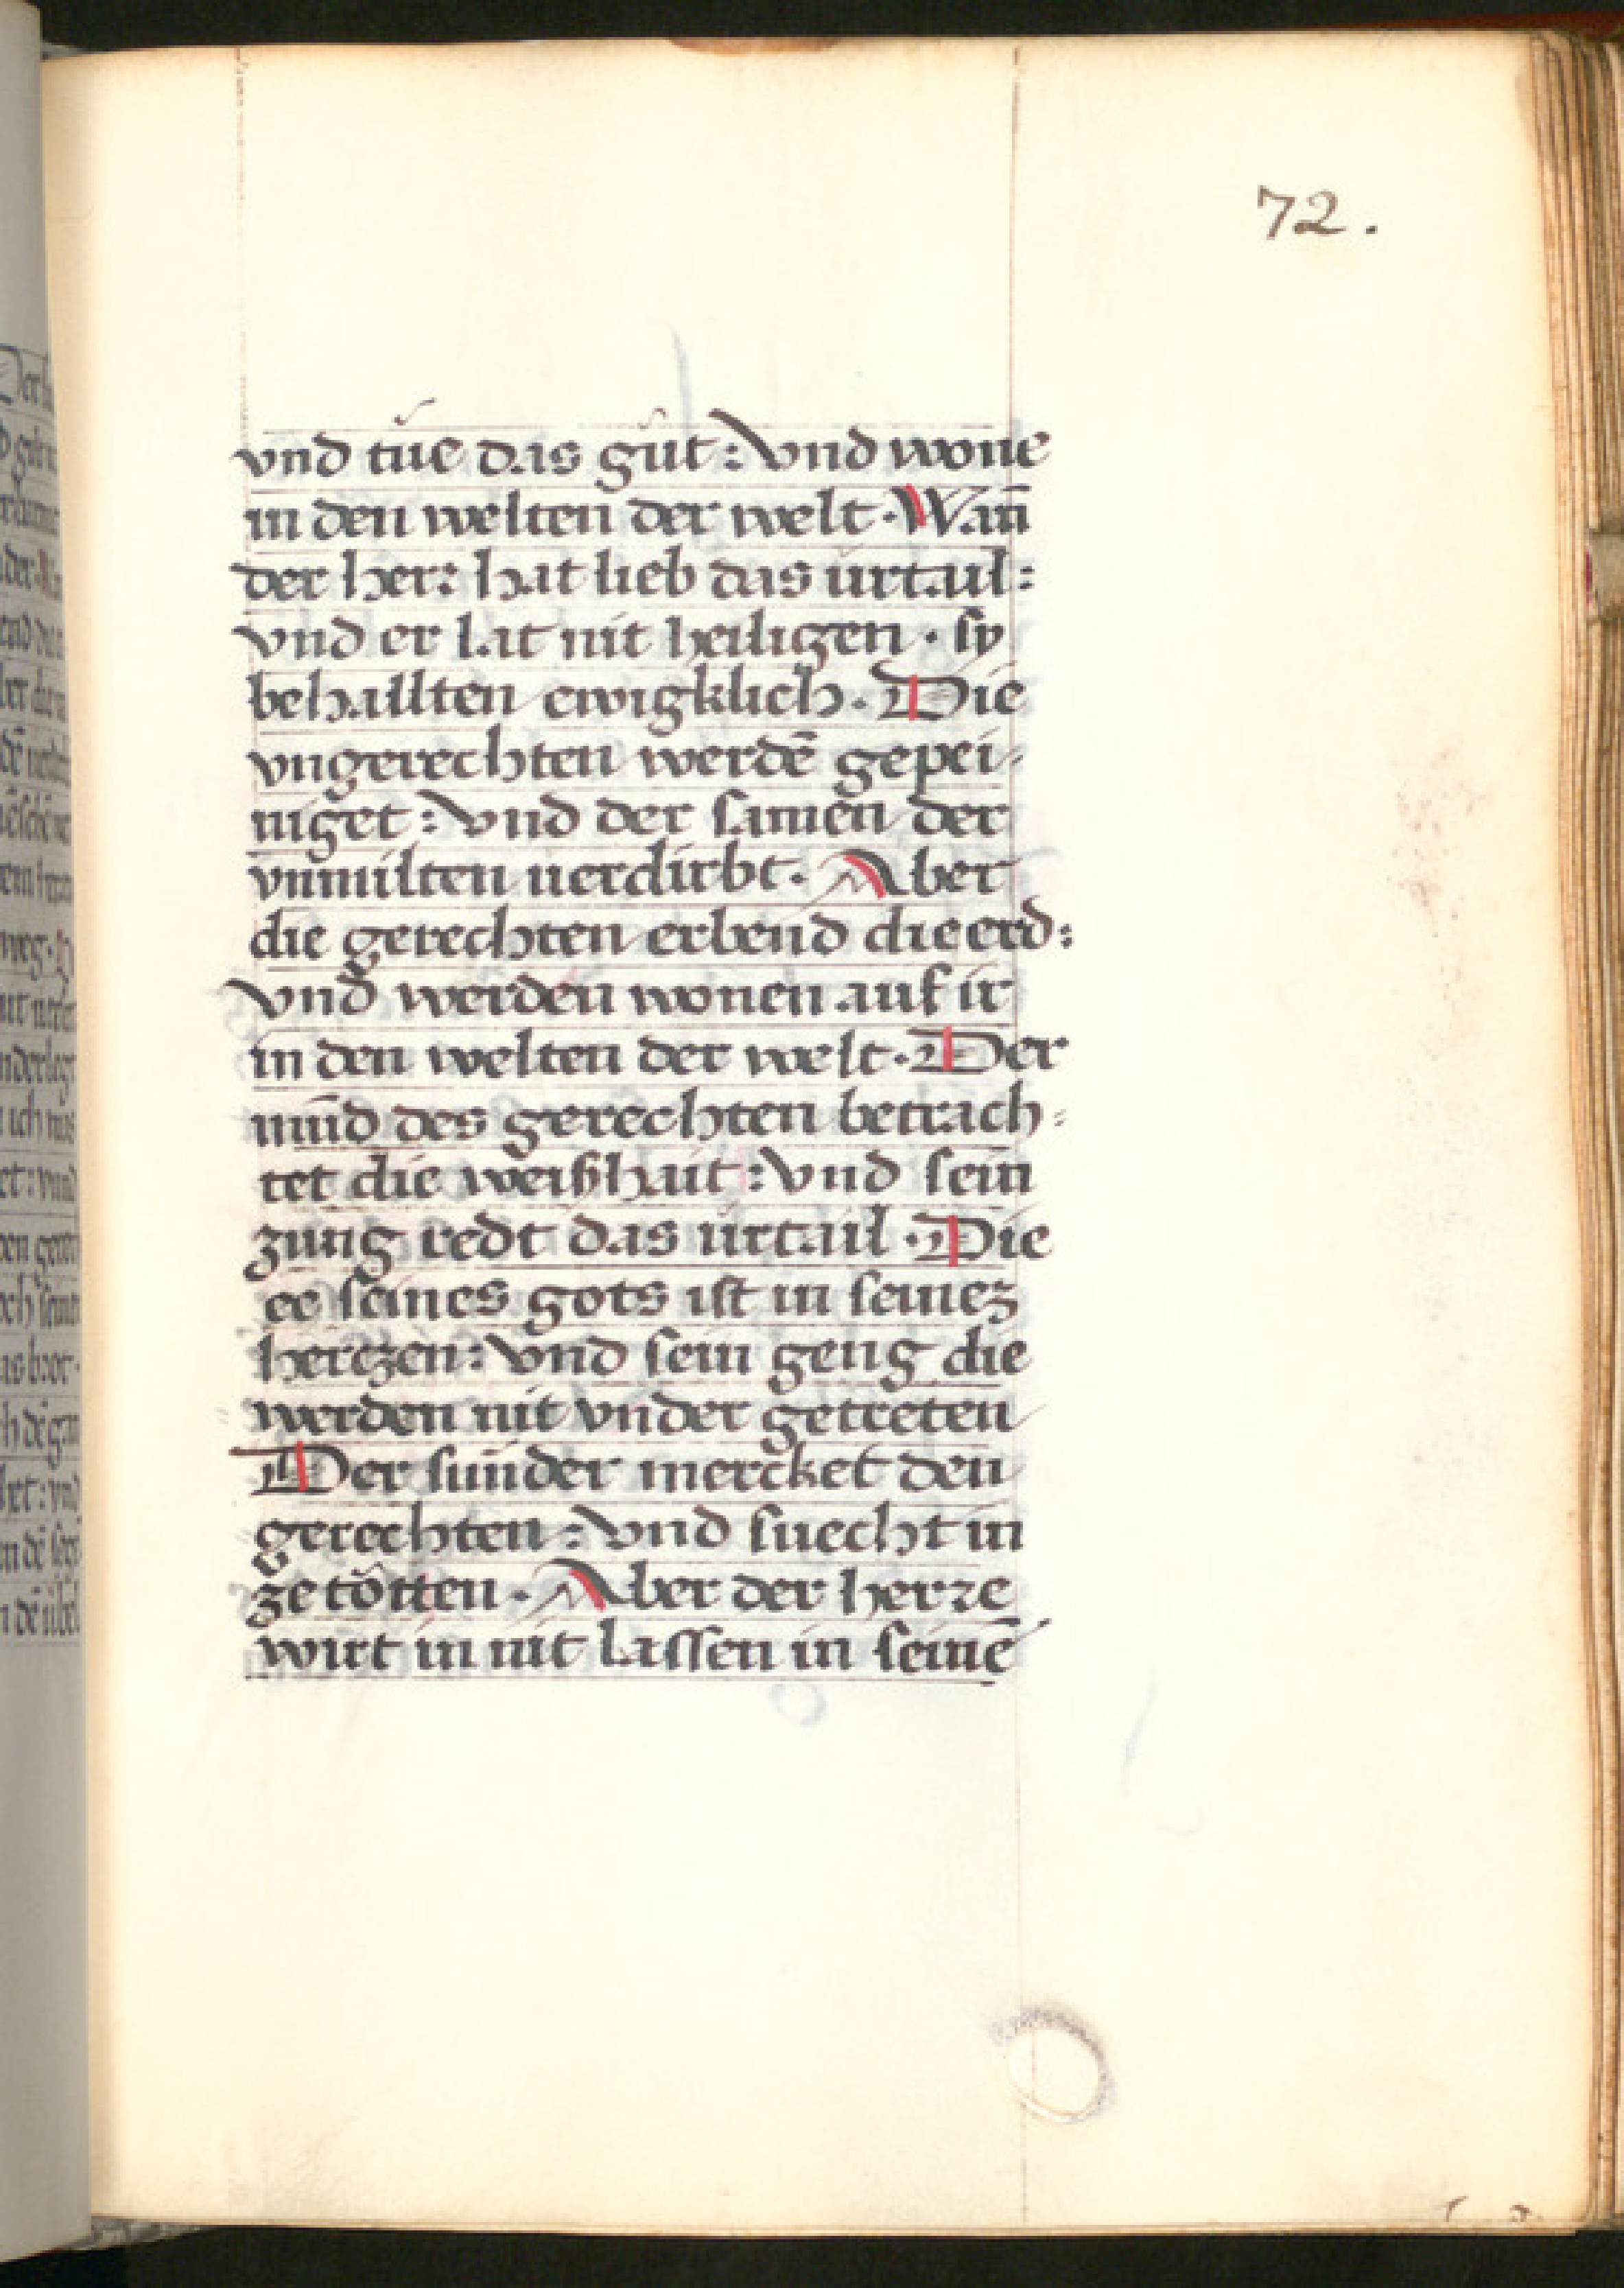 72.
vnd tuͤe das guͤt : Vnd wone
in den welten der welt · Wan̄
der herr hat lieb das vrtail :
vnd er lat nit heiligen · sy
behallten ewigklich · Die
vngerechten werdē gepei-
niget : Vnd der samen der
vnmilten uerdirbt · Aber
die gerechten erbend die erd :
Vnd werden wonen auf ir
in den welten der welt · Der
mūd des gerechten betrach-
tet die weißhait : Vnd sein
zung redt das urtail · Die
ee seines gots ist in seinez
herczen : Vnd sein geng die
werden nit vnder getreten
Der sünder mercket den
gerechten : Vnd suecht in
ze tötten · Aber der herre
wirt in nit lassen in seinē